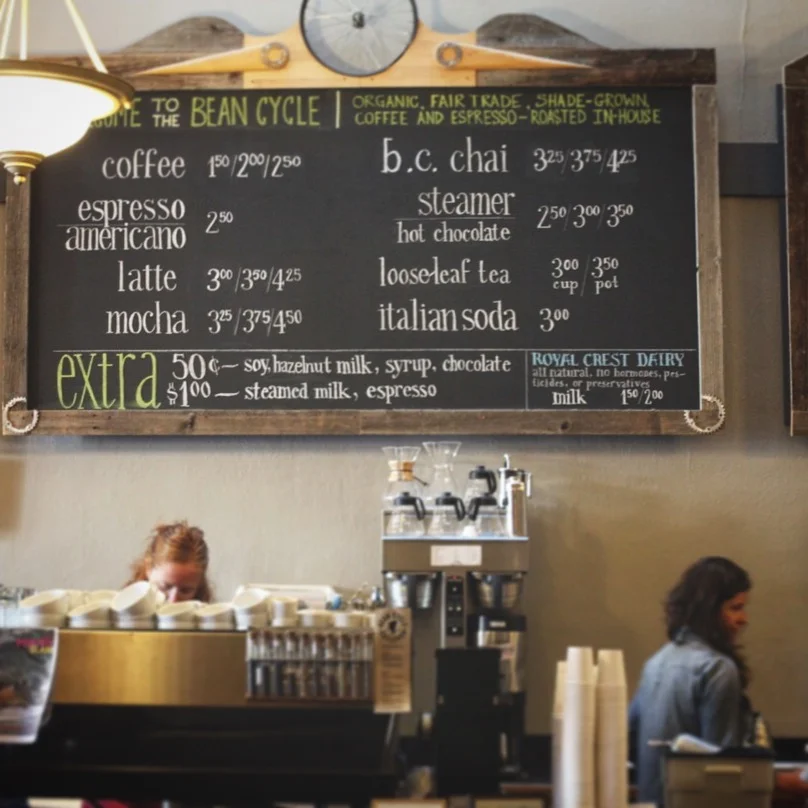 TO THE BEAN CYCLE | ORGANIC, FAIR TRADE, SHADE-GROWN,
COFFEE AND ESPRESSO-ROASTED IN-HOUSE
coffee 1⁵⁰/2⁰⁰/2⁵⁰
espresso
americano 2⁵⁰
latte 3⁰⁰/3⁵⁰/4²⁵
mocha 3²⁵/3⁷⁵/4⁵⁰
b.c. chai 3²⁵/3⁷⁵/4²⁵
steamer
hot chocolate 2⁵⁰/3⁰⁰/3⁵⁰
loose-leaf tea 3⁰⁰ cup / 3⁵⁰ pot
italian soda 3⁰⁰
extra 50¢ — soy, hazelnut milk, syrup, chocolate
$1⁰⁰ — steamed milk, espresso
ROYAL CREST DAIRY
all natural, no hormones, pes-
ticides, or preservatives
milk 1⁵⁰/2⁰⁰